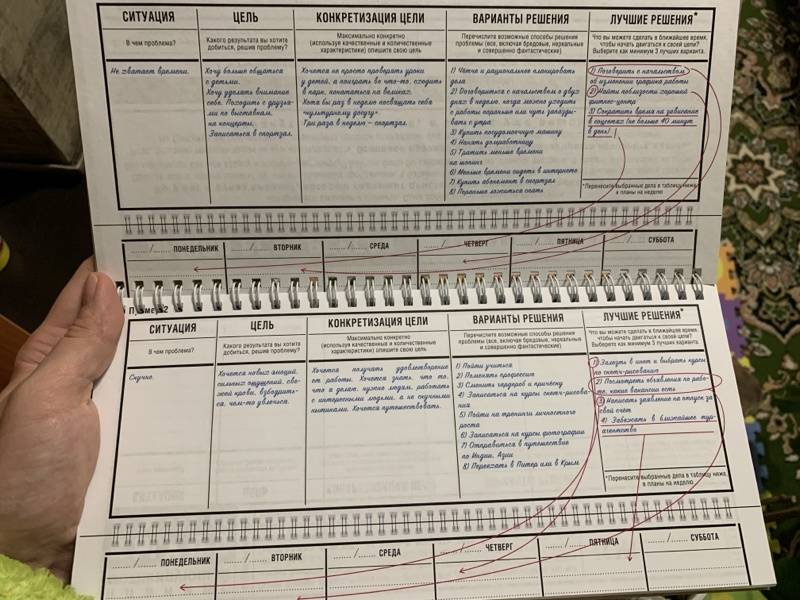 СИТУАЦИЯ
В чем проблема?
Не хватает времени.
ЦЕЛЬ
Какого результата вы хотите
добиться, решив проблему?
Хочу больше общаться
с детьми.
Хочу уделять внимание
себе. Походить с друзья-
ми по выставкам,
на концерты.
Записаться в спортзал.
КОНКРЕТИЗАЦИЯ ЦЕЛИ
Максимально конкретно
(используя качественные и количественные
характеристики) опишите свою цель
Хочется не просто проверять уроки
у детей, а поиграть во что-то, сходить
в парк, покататься на великах.
Хотя бы раз в неделю посвящать себя
«культурному досугу».
Три раза в неделю – спортзал.
ВАРИАНТЫ РЕШЕНИЯ
Перечислите возможные способы решения
проблемы (все, включая бредовые, нереальные
и совершенно фантастические)
1) Чётче и рациональнее планировать
дела
2) Договориться с начальством о двух
днях в неделю, когда можно уходить
с работы пораньше или чуть опазды-
вать с утра
3) Купить посудомоечную машину
4) Нанять домработницу
5) Тратить меньше времени
на шопинг
6) Меньше времени сидеть в интернете
7) Купить абонемент в спортзал
8) Пораньше ложиться спать
ЛУЧШИЕ РЕШЕНИЯ*
Что вы можете сделать в ближайшее время,
чтобы начать двигаться к своей цели?
Выберите как минимум 3 лучших варианта.
1) Поговорить с начальством
об изменении графика работы
2) Найти поблизости хороший
фитнес-центр
3) Сократить время на зависание
в соцсетях (не больше 40 минут
в день)
*Перенесите выбранные дела в таблицу ниже,
в планы на неделю
....../...... ПОНЕДЕЛЬНИК
....../...... ВТОРНИК
....../...... СРЕДА
....../...... ЧЕТВЕРГ
....../...... ПЯТНИЦА
....../...... СУББОТА
Пример 2
СИТУАЦИЯ
В чем проблема?
Скучно.
ЦЕЛЬ
Какого результата вы хотите
добиться, решив проблему?
Хочется новых эмоций,
сильных ощущений, све-
жей крови, взбодрить-
ся, чем-то увлечься.
КОНКРЕТИЗАЦИЯ ЦЕЛИ
Максимально конкретно
(используя качественные и количественные
характеристики) опишите свою цель
Хочется получать удовлетворение
от работы. Хочется знать, что то,
что я делаю, нужно людям, работать
с интересными людьми, а не скучными
нытиками. Хочется путешествовать.
ВАРИАНТЫ РЕШЕНИЯ
Перечислите возможные способы решения
проблемы (все, включая бредовые, нереальные
и совершенно фантастические)
1) Пойти учиться
2) Поменять профессию
3) Сменить гардероб и причёску
4) Записаться на курсы скетч-рисова-
ния
5) Пойти на тренинги личностного
роста
6) Записаться на курсы фотографии
7) Отправиться в путешествие
по Индии, Азии
8) Переехать в Питер или в Крым
ЛУЧШИЕ РЕШЕНИЯ*
Что вы можете сделать в ближайшее время,
чтобы начать двигаться к своей цели?
Выберите как минимум 3 лучших варианта.
1) Залезть в инет и выбрать курсы
по скетч-рисованию
2) Посмотреть объявления по рабо-
те, какие вакансии есть
3) Написать заявление на отпуск за
свой счёт
4) Забежать в ближайшее тур-
агентство
*Перенесите выбранные дела в таблицу ниже,
в планы на неделю
....../...... ПОНЕДЕЛЬНИК
....../...... ВТОРНИК
....../...... СРЕДА
....../...... ЧЕТВЕРГ
....../...... ПЯТНИЦА
....../...... СУББОТА